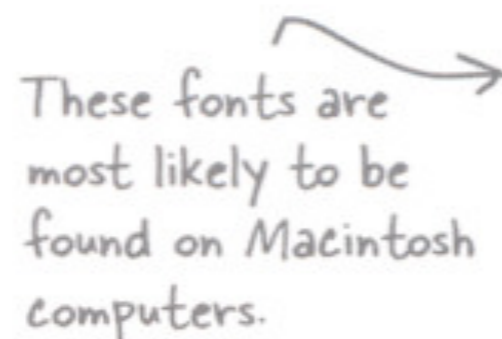 These fonts are
most likely to be
found on Macintosh
computers.